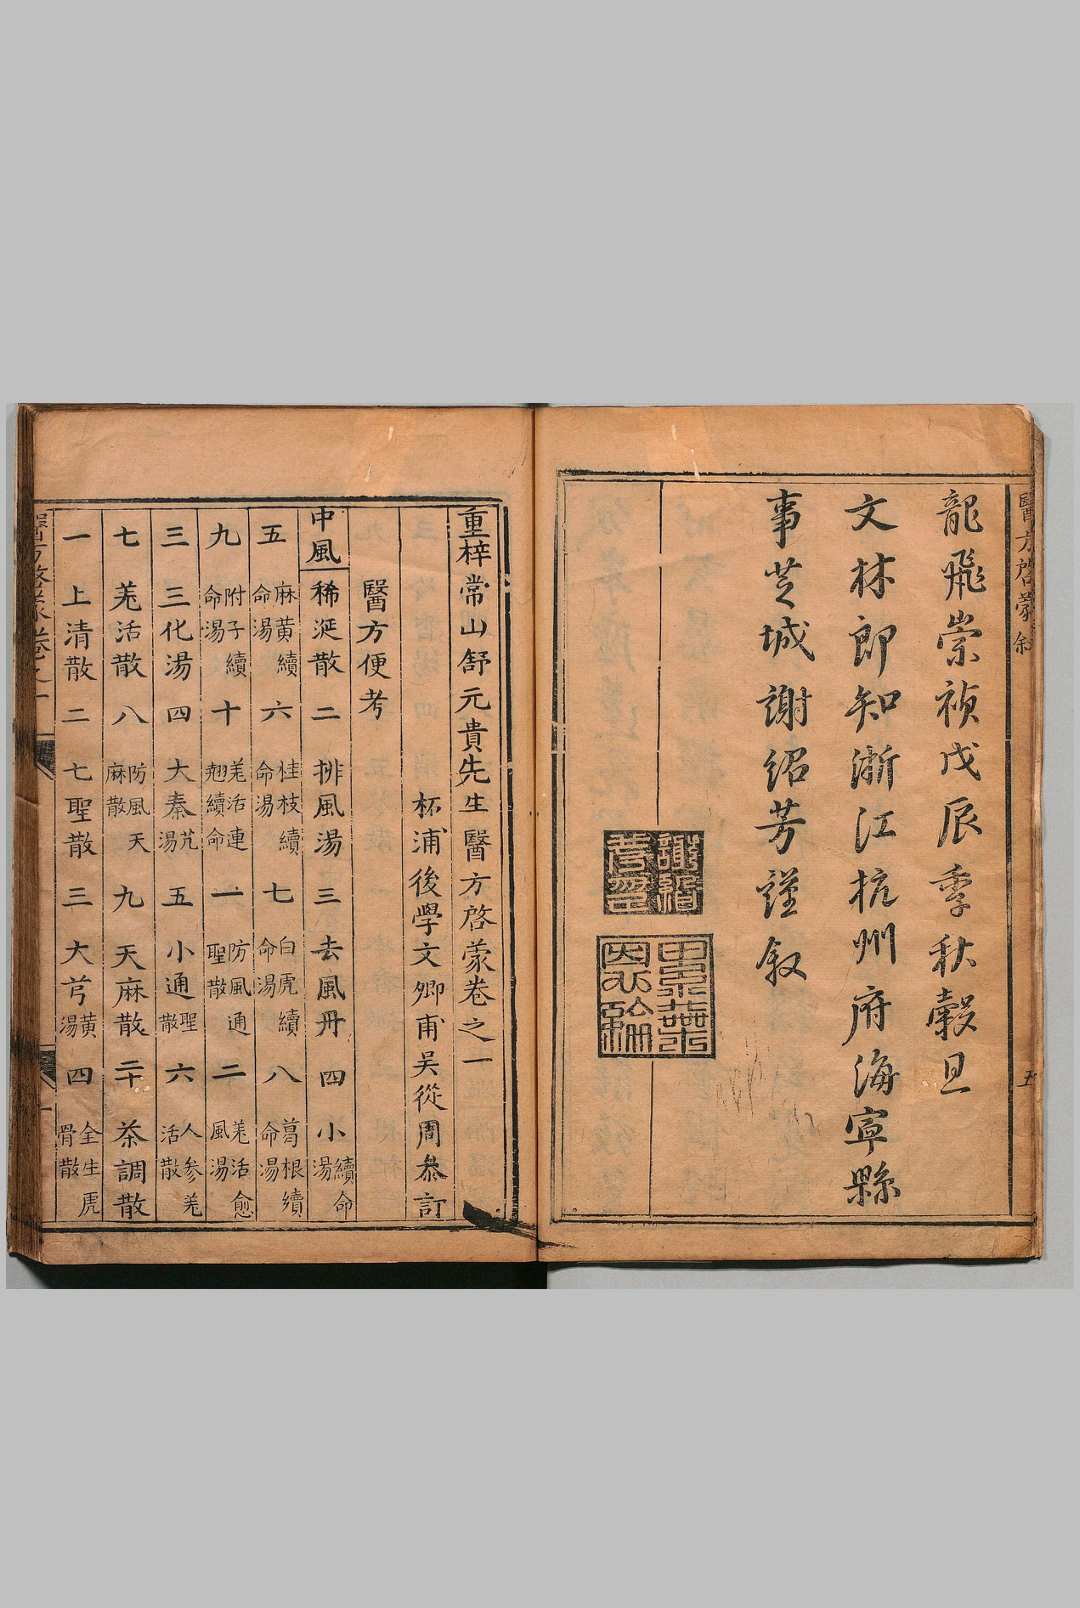 醫方啓蒙叙
五
龍飛崇禎戊辰季秋穀旦
文林郎知浙江杭州府海寧縣
事芝城謝紹芳謹叙
重梓常山舒元貴先生醫方啓蒙卷之一
杯浦後學文卿甫吴從周叅訂
醫方便考
中風 稀涎散 二 排風湯 三 去風丹 四 小續命湯
五 麻黄續命湯 六 桂枝續命湯 七 白虎續命湯 八 葛根續命湯
九 附子續命湯 十 羗活連翹續命 一 防風通聖散 二 羗活愈風湯
三 三化湯 四 大秦艽湯 五 小通聖散 六 人參羗活散
七 羗活散 八 防風天麻散 九 天麻散 二十 茶調散
一 上清散 二 七聖散 三 大芎黄湯 四 全生虎骨散
醫方啓蒙卷之一